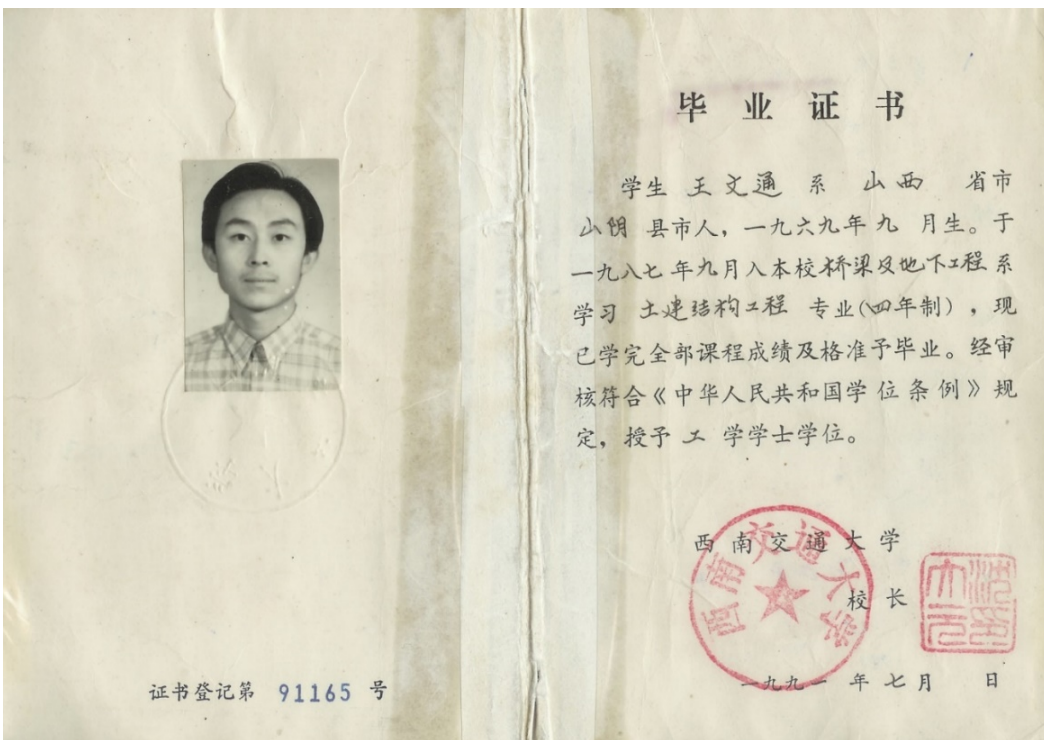 证书登记第 91165 号
毕业证书
学生 王文通 系 山西 省市
山阴 县市人，一九六九年 九 月生。于
一九八七 年九月入本校 桥梁及地下工程 系
学习 土建结构工程 专业（四年制），现
已学完全部课程成绩及格准予毕业。经审
核符合《中华人民共和国学位条例》规
定，授予 工 学学士学位。
西南交通大学
西南交通大学
校长
一九九一 年 七 月 日